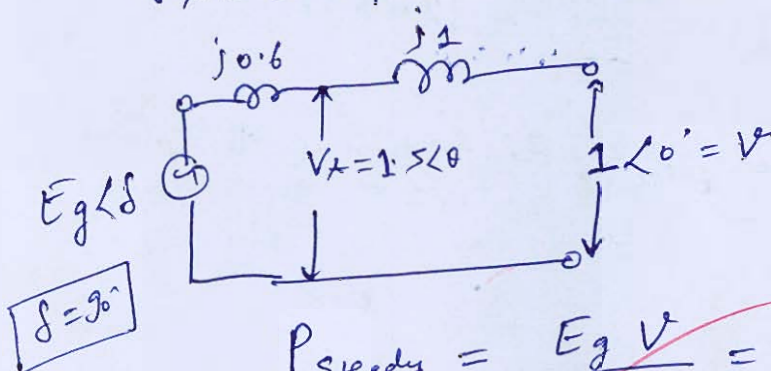 j0.6
j1
Eg∠δ
Vt=1.5∠θ
1∠0°=V
δ=90°
Psteady = Eg V =